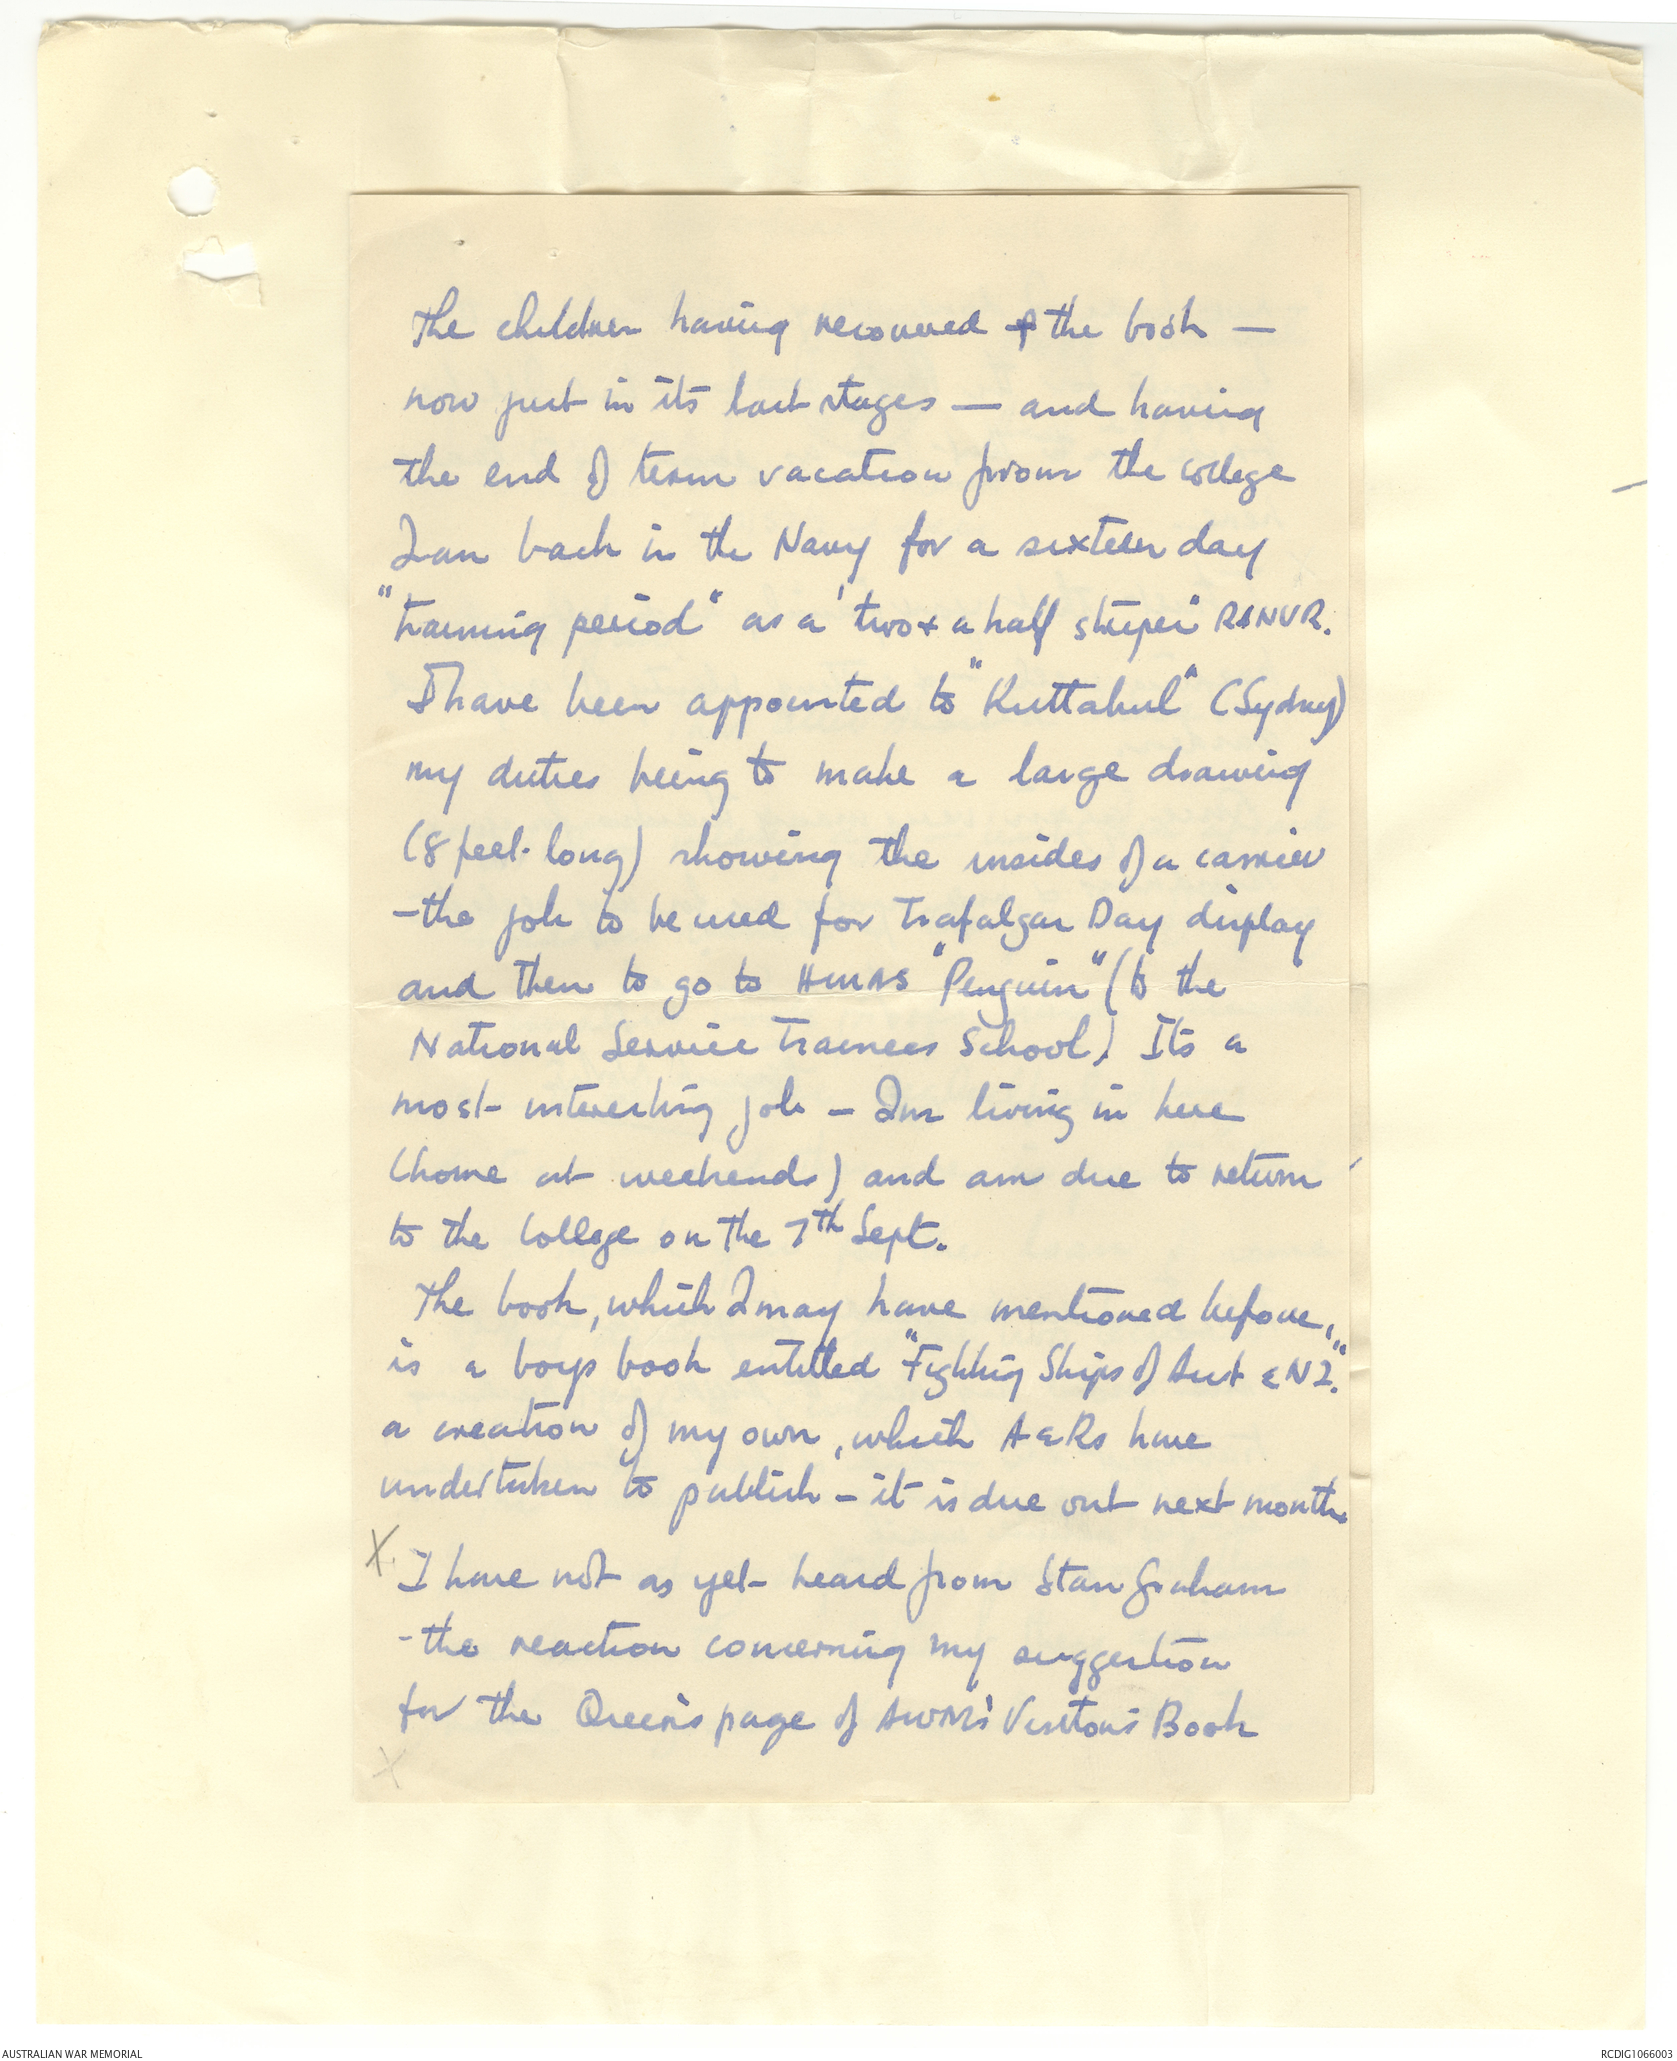 The children having recovered & the book —
now just in its last stages — and having
the end of term vacation from the college
I am back in the Navy for a sixteen day
"training period" as a 'two & a half striper" RANVR.
I have been appointed to "Kuttabul" (Sydney)
my duties being to make a large drawing
(8 feet long) showing the insides of a carrier
- the job to be used for Trafalgar Day display
and then to go to HMAS "Penguin" (to the
National Service Trainees School). Its a
most interesting job - Im living in here
(home at weekends) and am due to return
to the College on the 7th Sept.
The book, which I may have mentioned before,
is a boys book entitled "Fighting Ships of Aust & NZ."
a creation of my own, which A & Rs have
undertaken to publish - it is due out next month.
X I have not as yet heard from Stan Graham
- the reaction concerning my suggestion
for the Queen's page of AWM's Visitors Book
X
AUSTRALIAN WAR MEMORIAL
RCDIG1066003